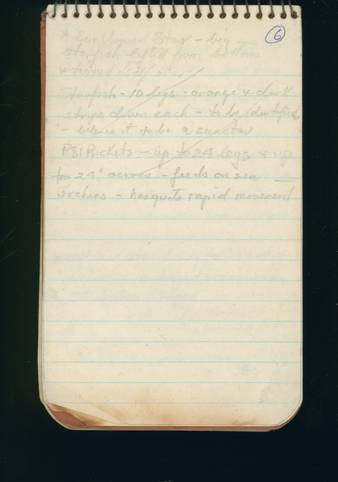 6
Star - big
starfish from bottom
Starfish - 10 legs - orange & dark
stripe down each - to be identified
- believe it to be a sunstar
PSI Rickets - up to 24 legs & up
to 24" across - feeds on sea
urchins - has quite rapid movement